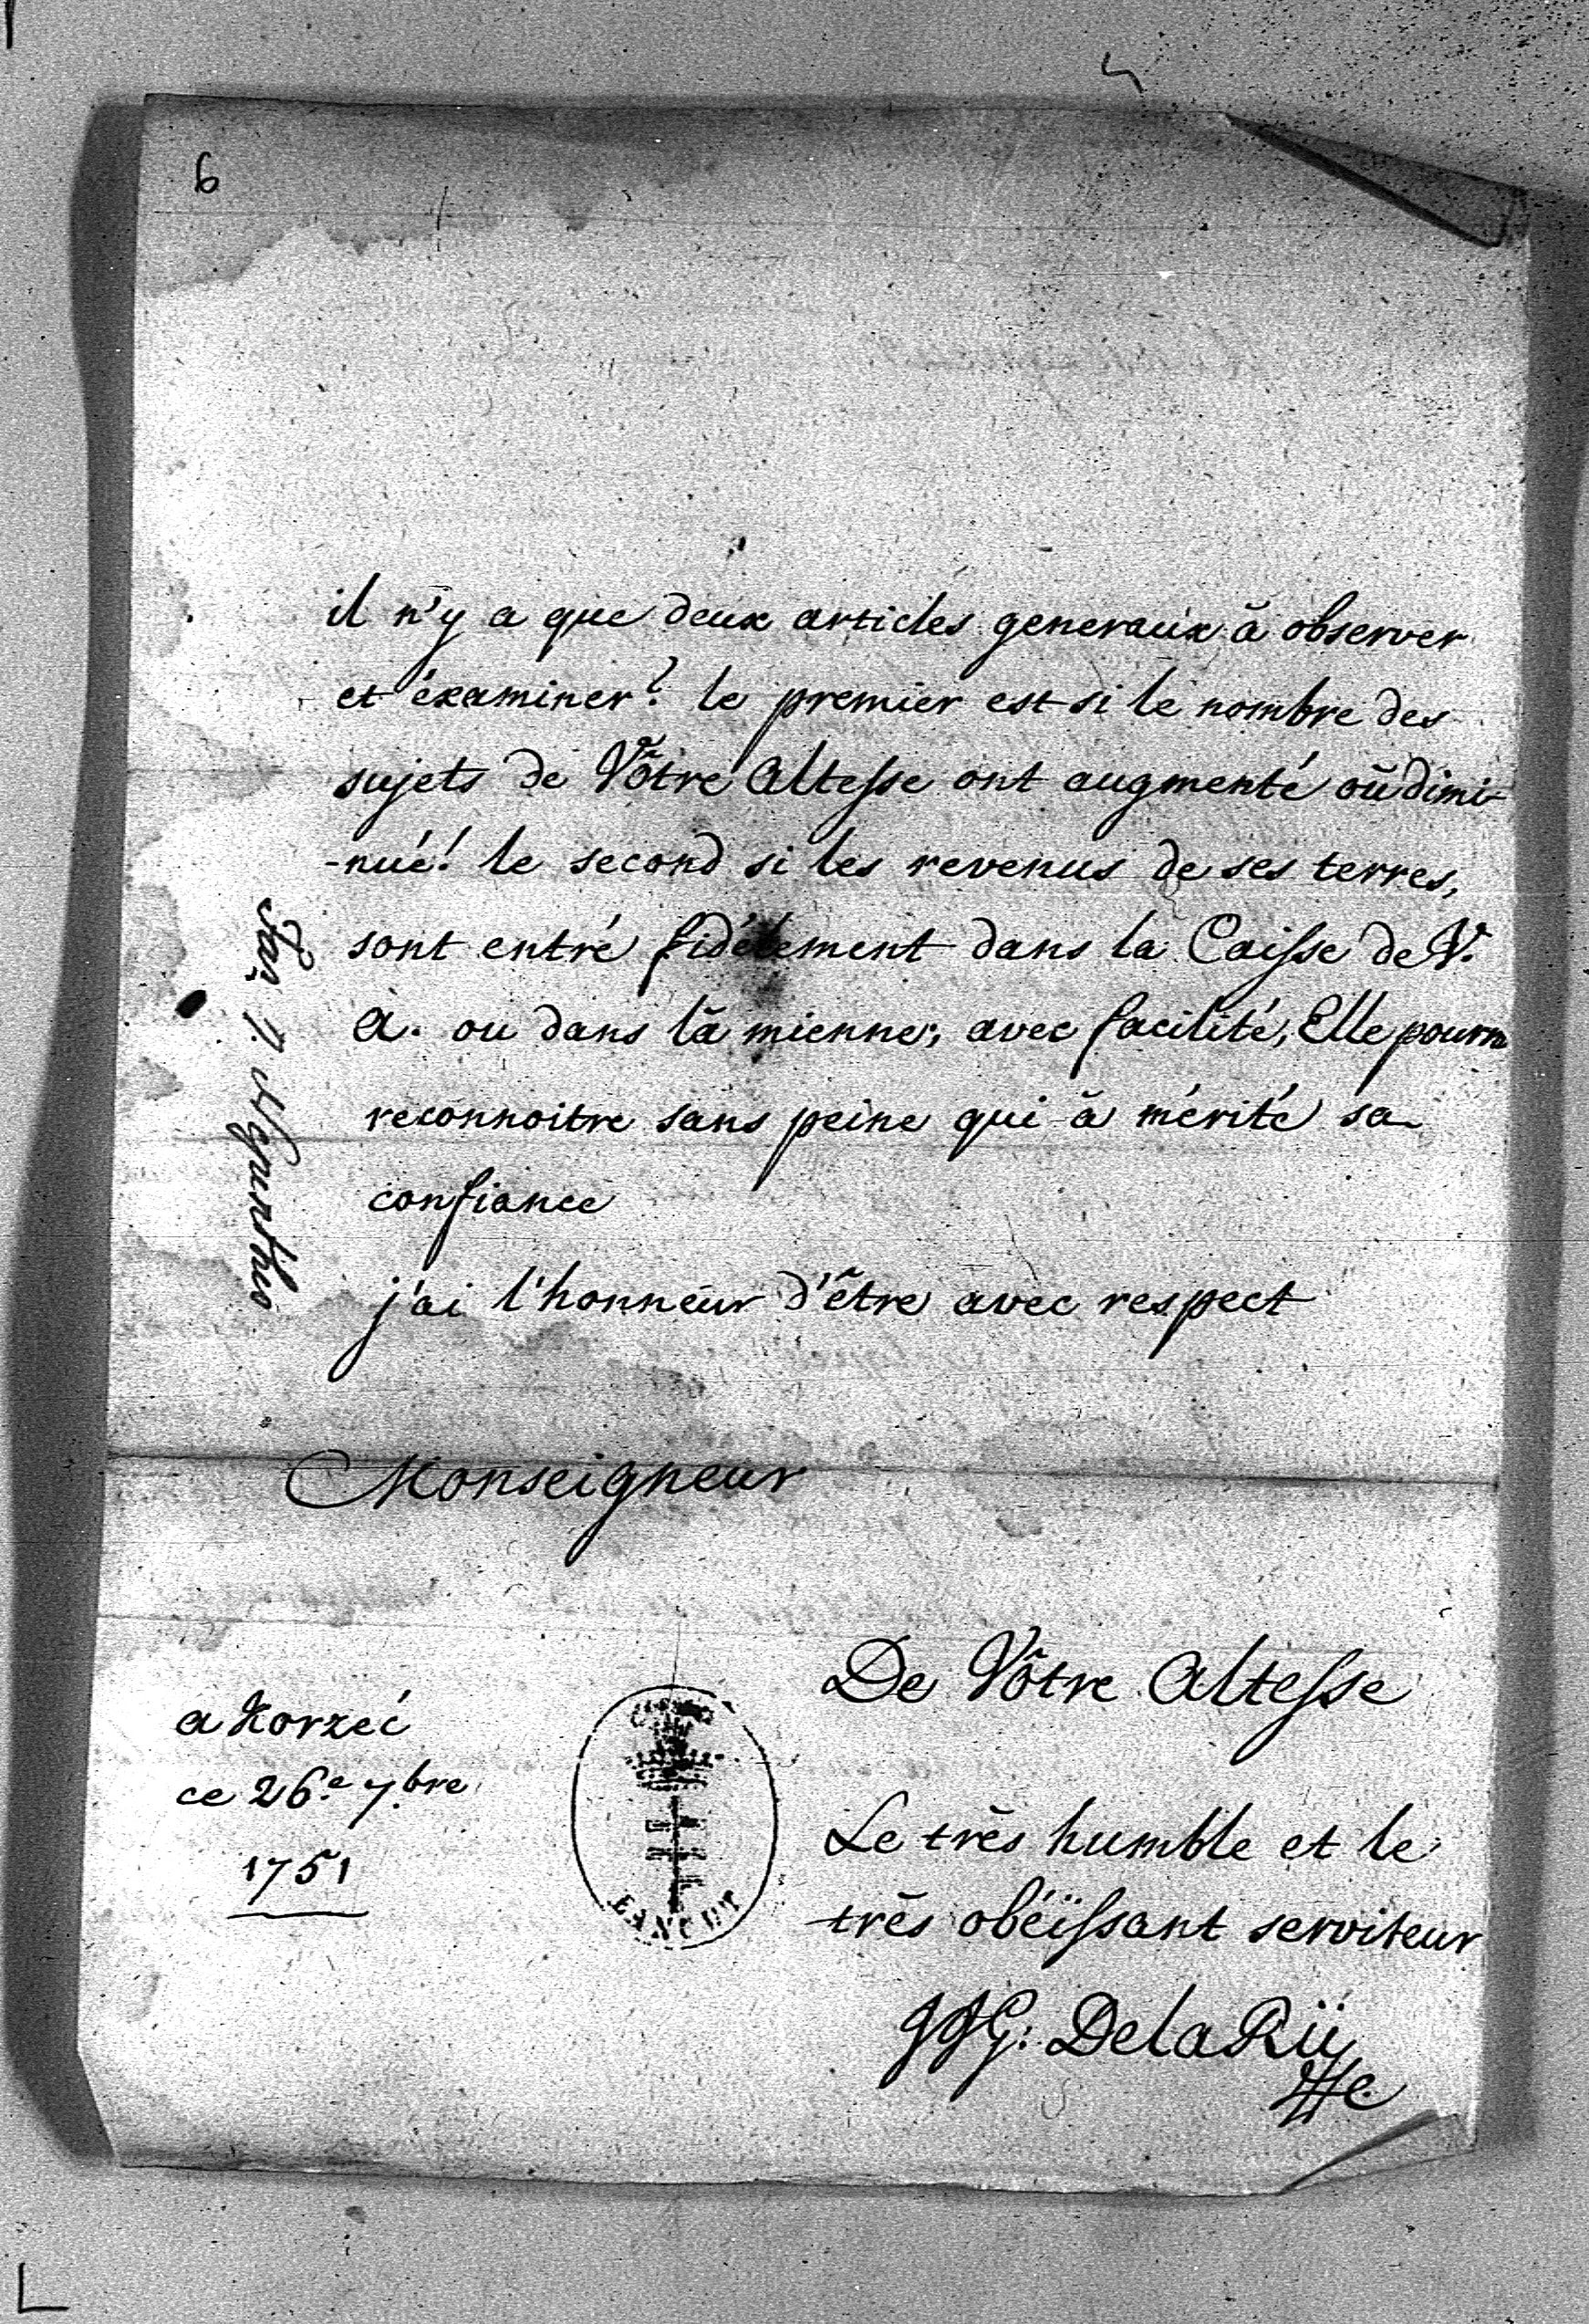 6
il n'y a que deux articles generaux à observer
et éxaminer? le premier est si le nombre des
sujets de Vôtre Altesse ont augmenté où dimi-
-nué! le second si les revenus de ses terres,
sont entré fidélement dans la Caisse de V.
A. ou dans là mienne; avec facilité, Elle pourra
reconnoitre sans peine qui à mérité sa
confiance
j'ai l'honneur d'être avec respect
Monseigneur
De Vôtre Altesse
a Korzéc
ce 26.e 7.bre
1751
Le très humble et le
très obéïssant serviteur
JJG: DelaRüe